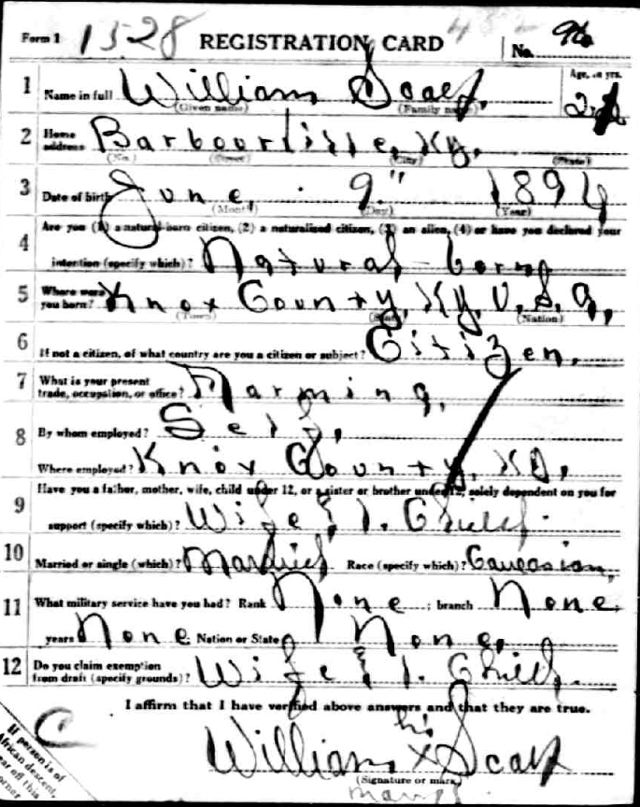 Form 1 1528 REGISTRATION CARD No. 96
1 Name in full William Scalf. Age, in yrs.
(Given name) (Family name)
2 Home address Barbourville, Ky.
(No.) (Street) (City) (State)
3 Date of birth June 9" 1894
(Month) (Day) (Year)
4 Are you (1) a natural-born citizen, (2) a naturalized citizen, (3) an alien, (4) or have you declared your
intention (specify which)? Natural-born
5 Where were you born? Knox County, Ky, U.S.A,
(Town) (State) (Nation)
6 If not a citizen, of what country are you a citizen or subject? Citizen.
7 What is your present trade, occupation, or office? Farming,
8 By whom employed? Self,
Where employed? Knox County, Ky,
9 Have you a father, mother, wife, child under 12, or a sister or brother under 12, solely dependent on you for
support (specify which)? Wife & 1. Child.
10 Married or single (which)? Married Race (specify which)? Caucasian,
11 What military service have you had? Rank None ; branch None,
years None Nation or State None,
12 Do you claim exemption from draft (specify grounds)? Wife & 1. Child.
I affirm that I have verified above answers and that they are true.
his
William X Scalf
(Signature or mark)
mark
If person is of
African descent,
tear off this
corner